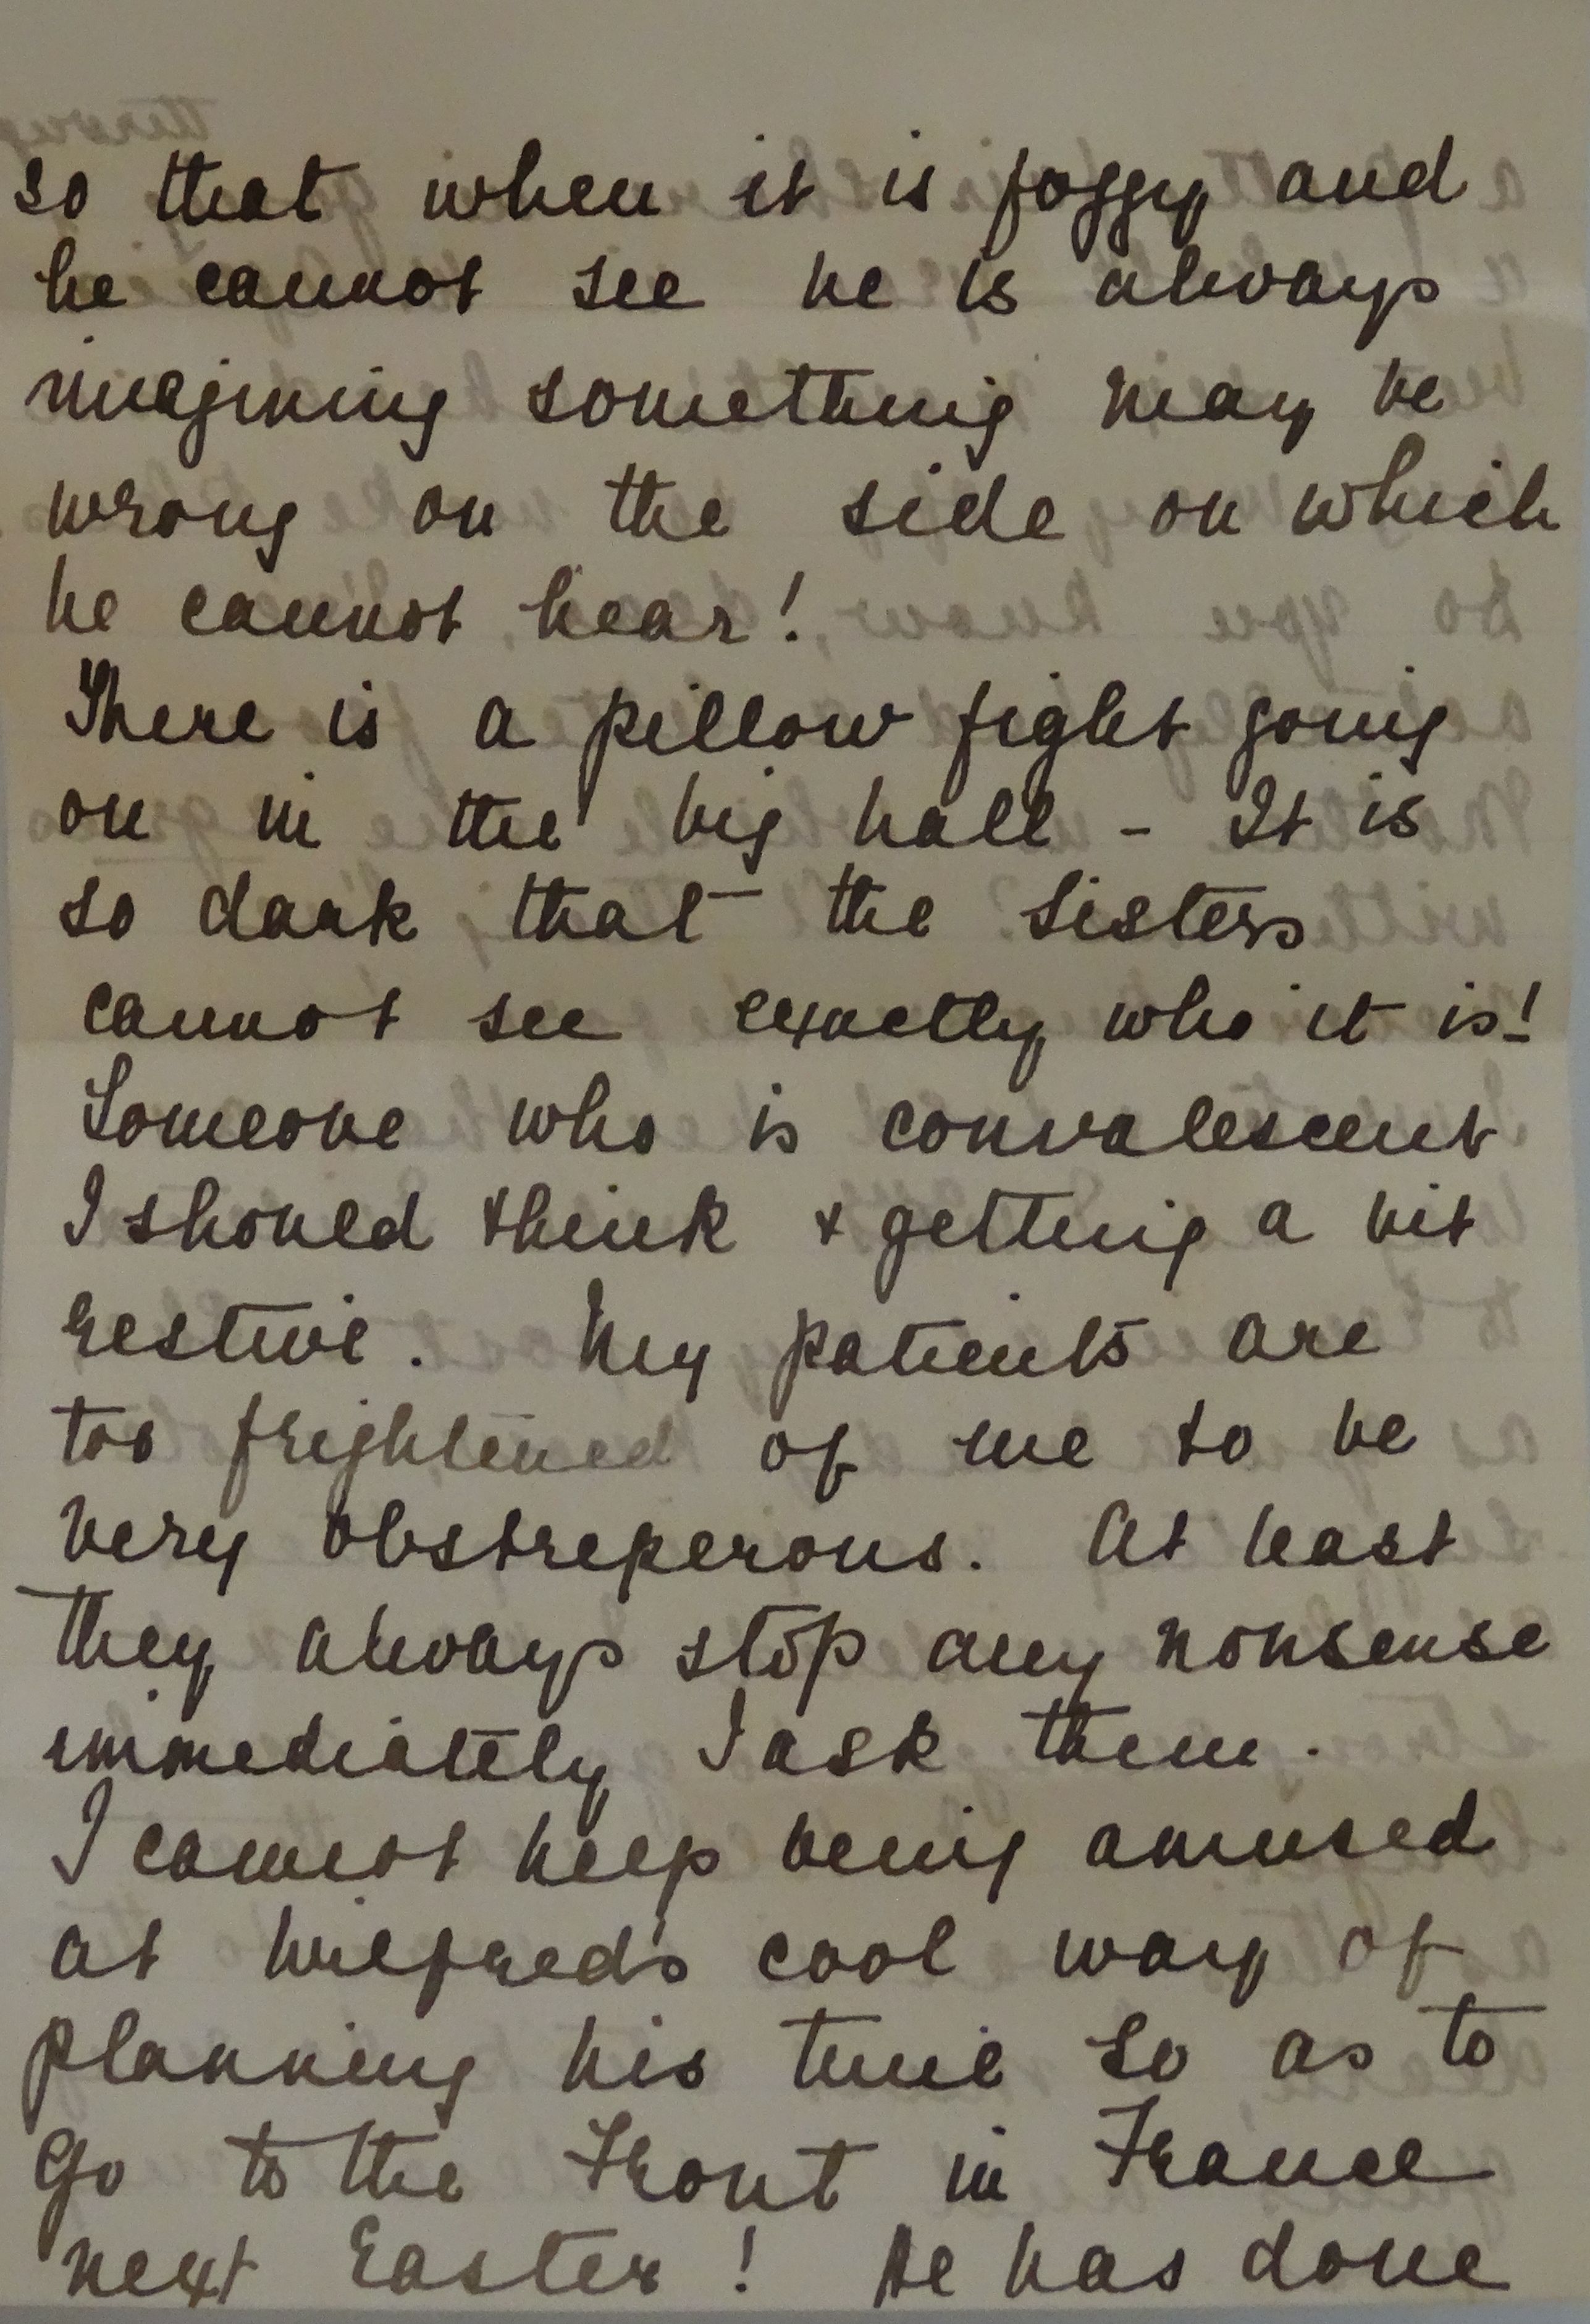 so that when it is foggy and
he cannot see he is always
imagining something may be
wrong on the side on which
he cannot hear!
There is a pillow fight going
on in the big hall - It is
so dark that the Sisters
cannot see exactly who it is!
Someone who is convalescent
I should think & getting a bit
restive. My patients are
too frightened of me to be
very obstreperous. At least
they always stop any nonsense
immediately I ask them.
I cannot keep being amused
at Wilfred's cool way of
planning his time so as to
go to the Front in France
next Easter! He has done